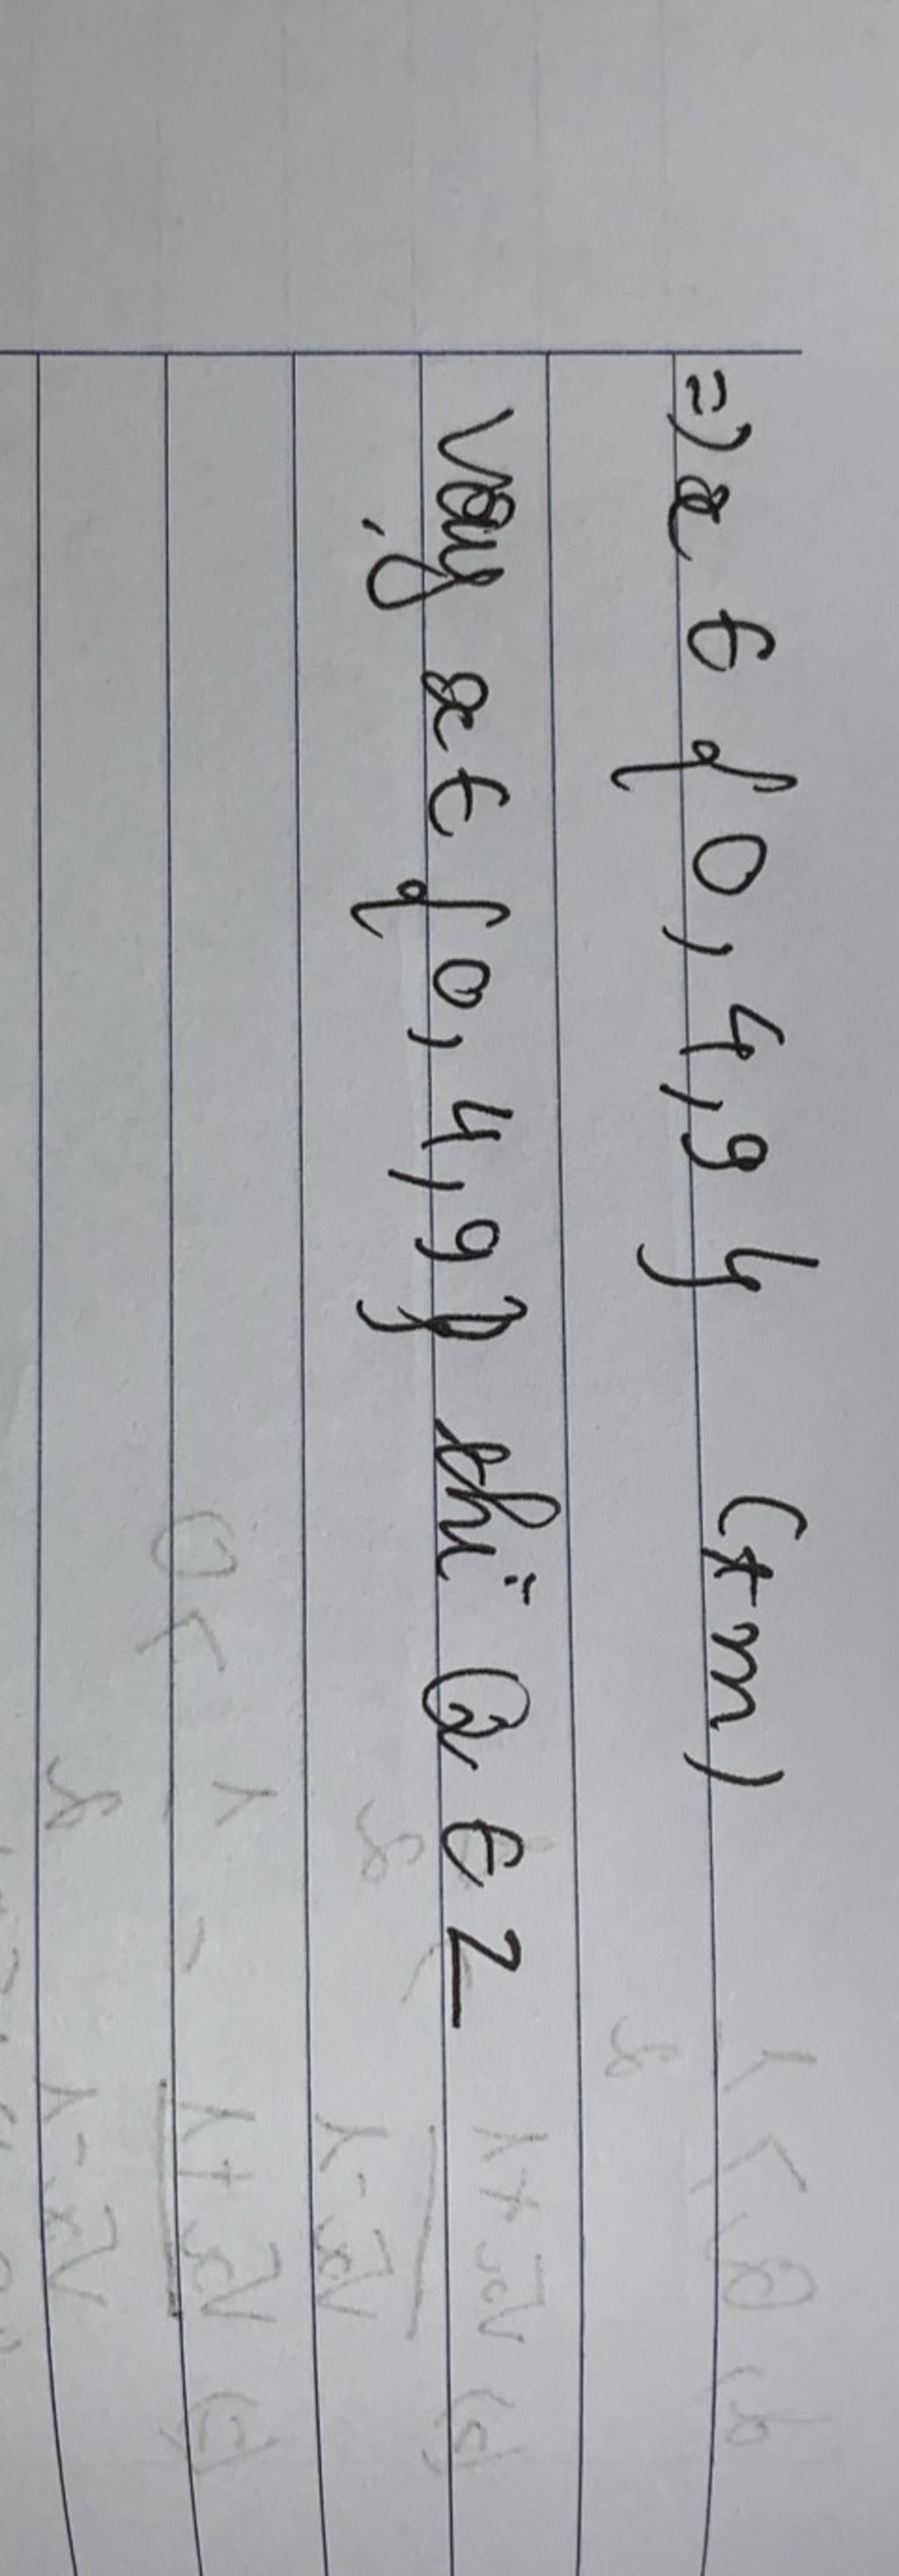 =) x ∈ {0, 4, 9} (tm)
Vậy x ∈ {0, 4, 9} thì Q ∈ Z